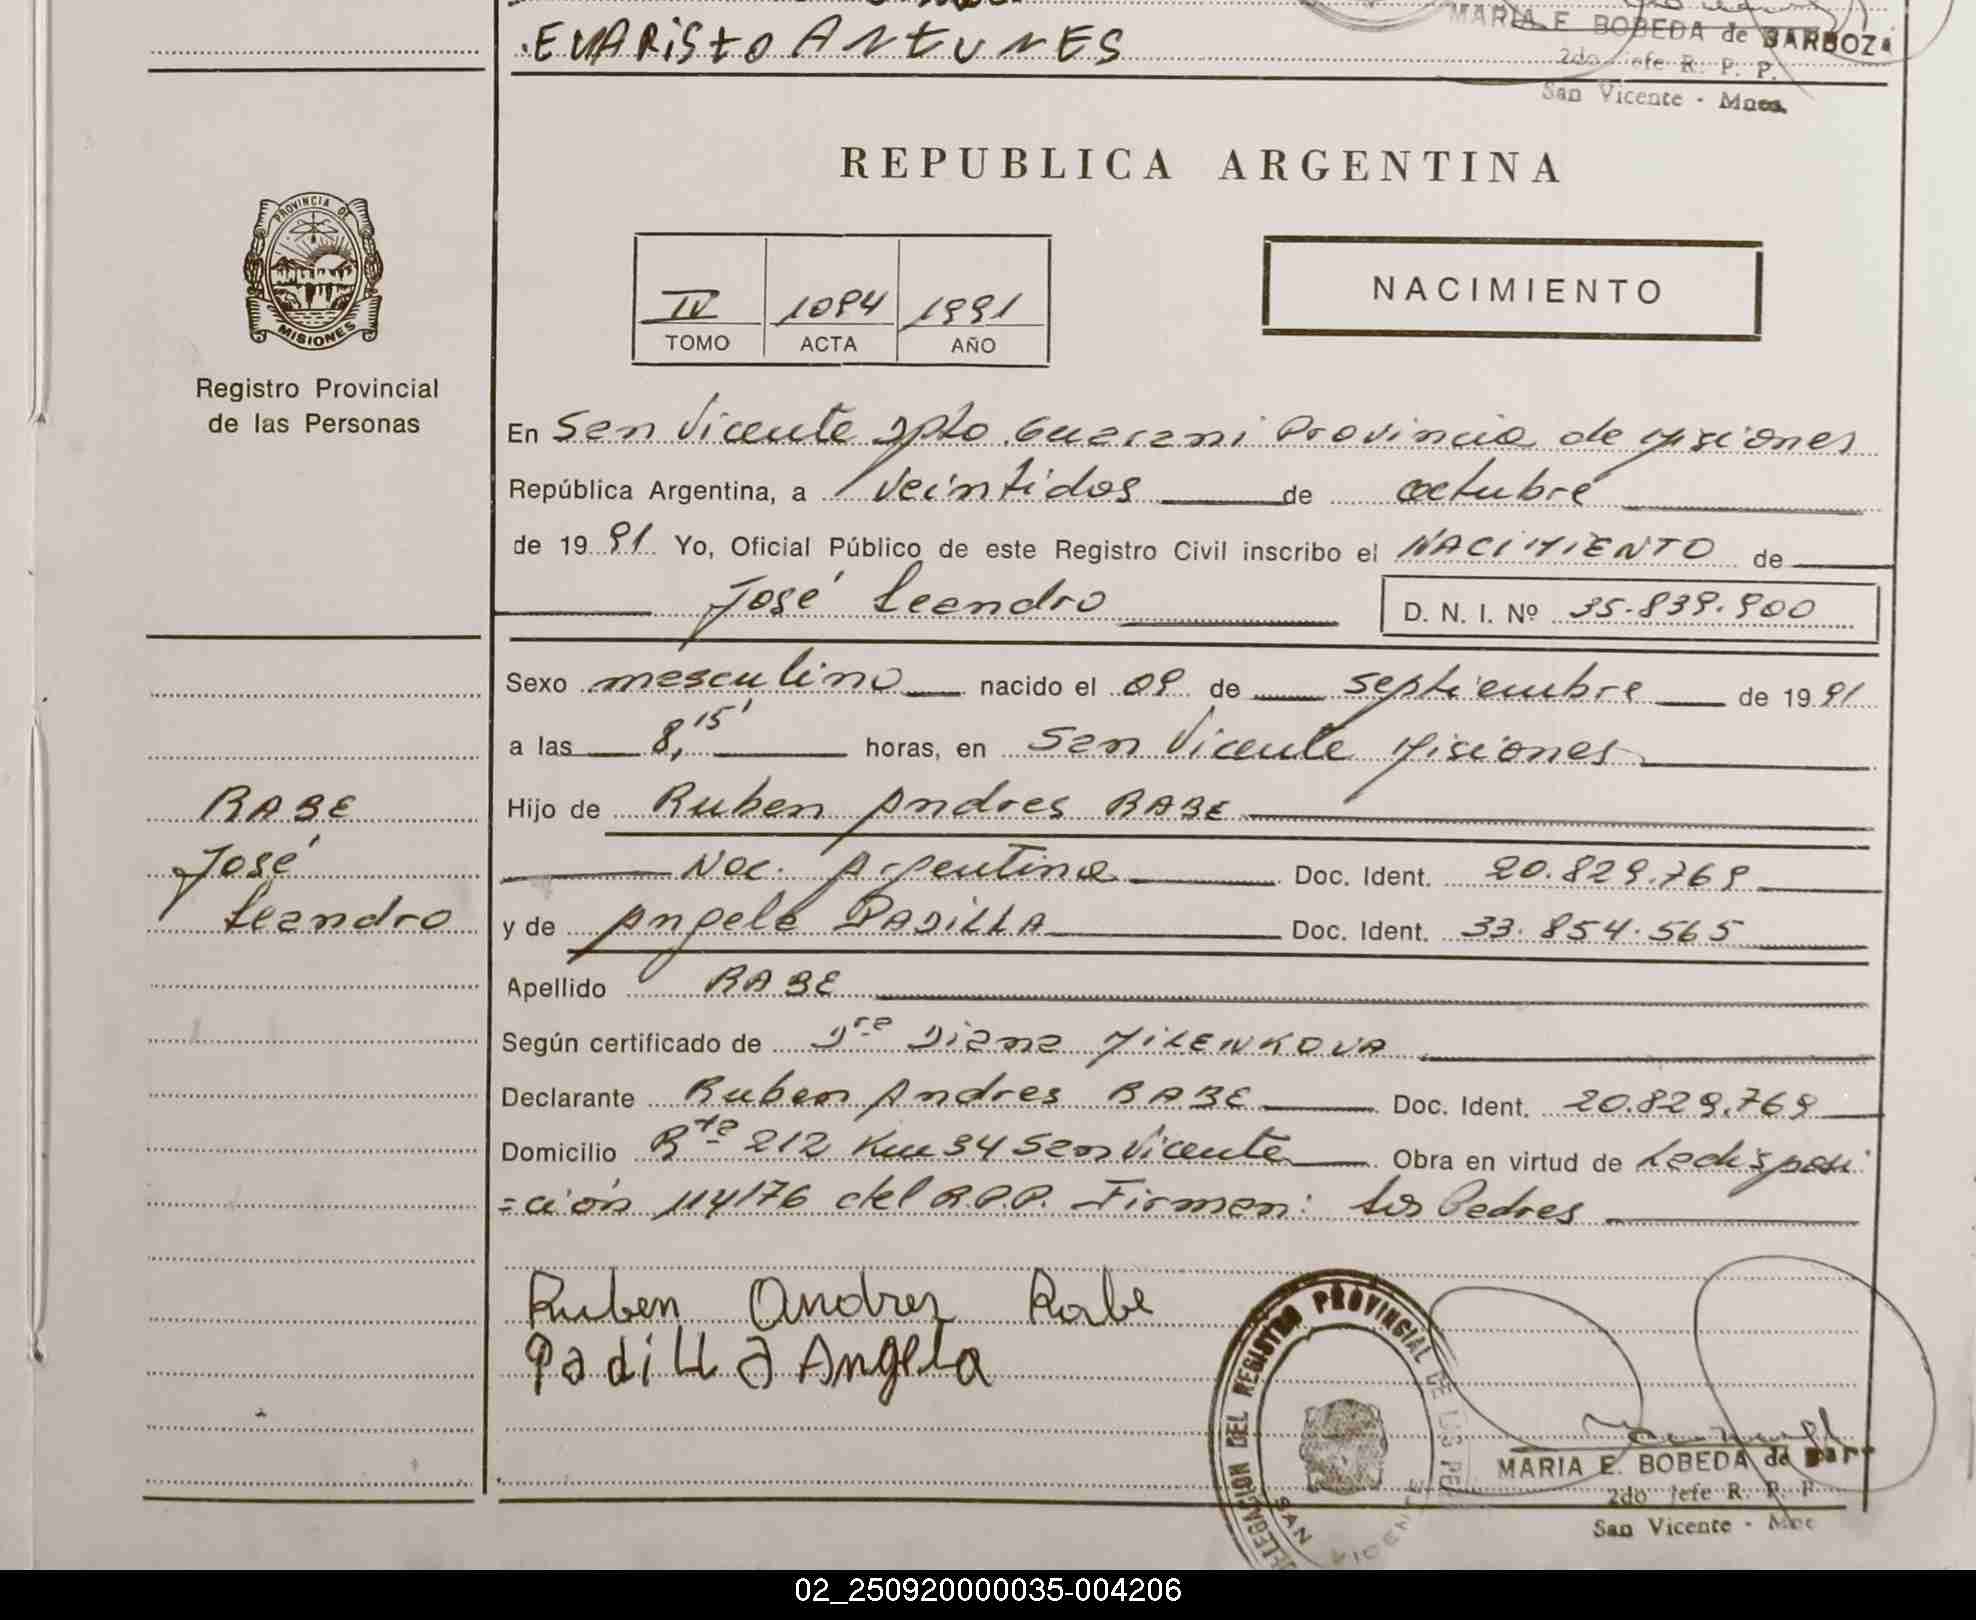 EVARISTO ANTUNES
MARIA E. BOBEDA de BARBOZA
2do Jefe R. P. P.
San Vicente - Mnes.
REPUBLICA ARGENTINA
PROVINCIA DE
MISIONES
Registro Provincial
de las Personas
IV 1094 1991
TOMO ACTA AÑO
NACIMIENTO
En San Vicente Dpto. Guarani Provincia de Misiones
República Argentina, a veintidos de octubre
de 1991 Yo, Oficial Público de este Registro Civil inscribo el NACIMIENTO de
José Leandro D. N. I. Nº 35.839.900
Sexo masculino nacido el 09 de septiembre de 1991
a las 8,15' horas, en San Vicente Misiones
Hijo de Ruben Andres RABE
Nac. Argentina Doc. Ident. 20.829.769
y de Angela PADILLA Doc. Ident. 33.854.565
Apellido RABE
Según certificado de Dra Diana MILENKOVA
Declarante Ruben Andres RABE Doc. Ident. 20.829.769
Domicilio Rta 212 Km 34 San Vicente Obra en virtud de La disposi
=ción 114/76 del R.P.P. Firman: Los Padres
RABE
José
Leandro
Ruben Andres Rabe
Padilla Angela
DELEGACION DEL REGISTRO PROVINCIAL DE LAS PER
SAN VICENTE
MARIA E. BOBEDA de Bar
2do Jefe R. P. P.
San Vicente - Mnes
02_250920000035-004206